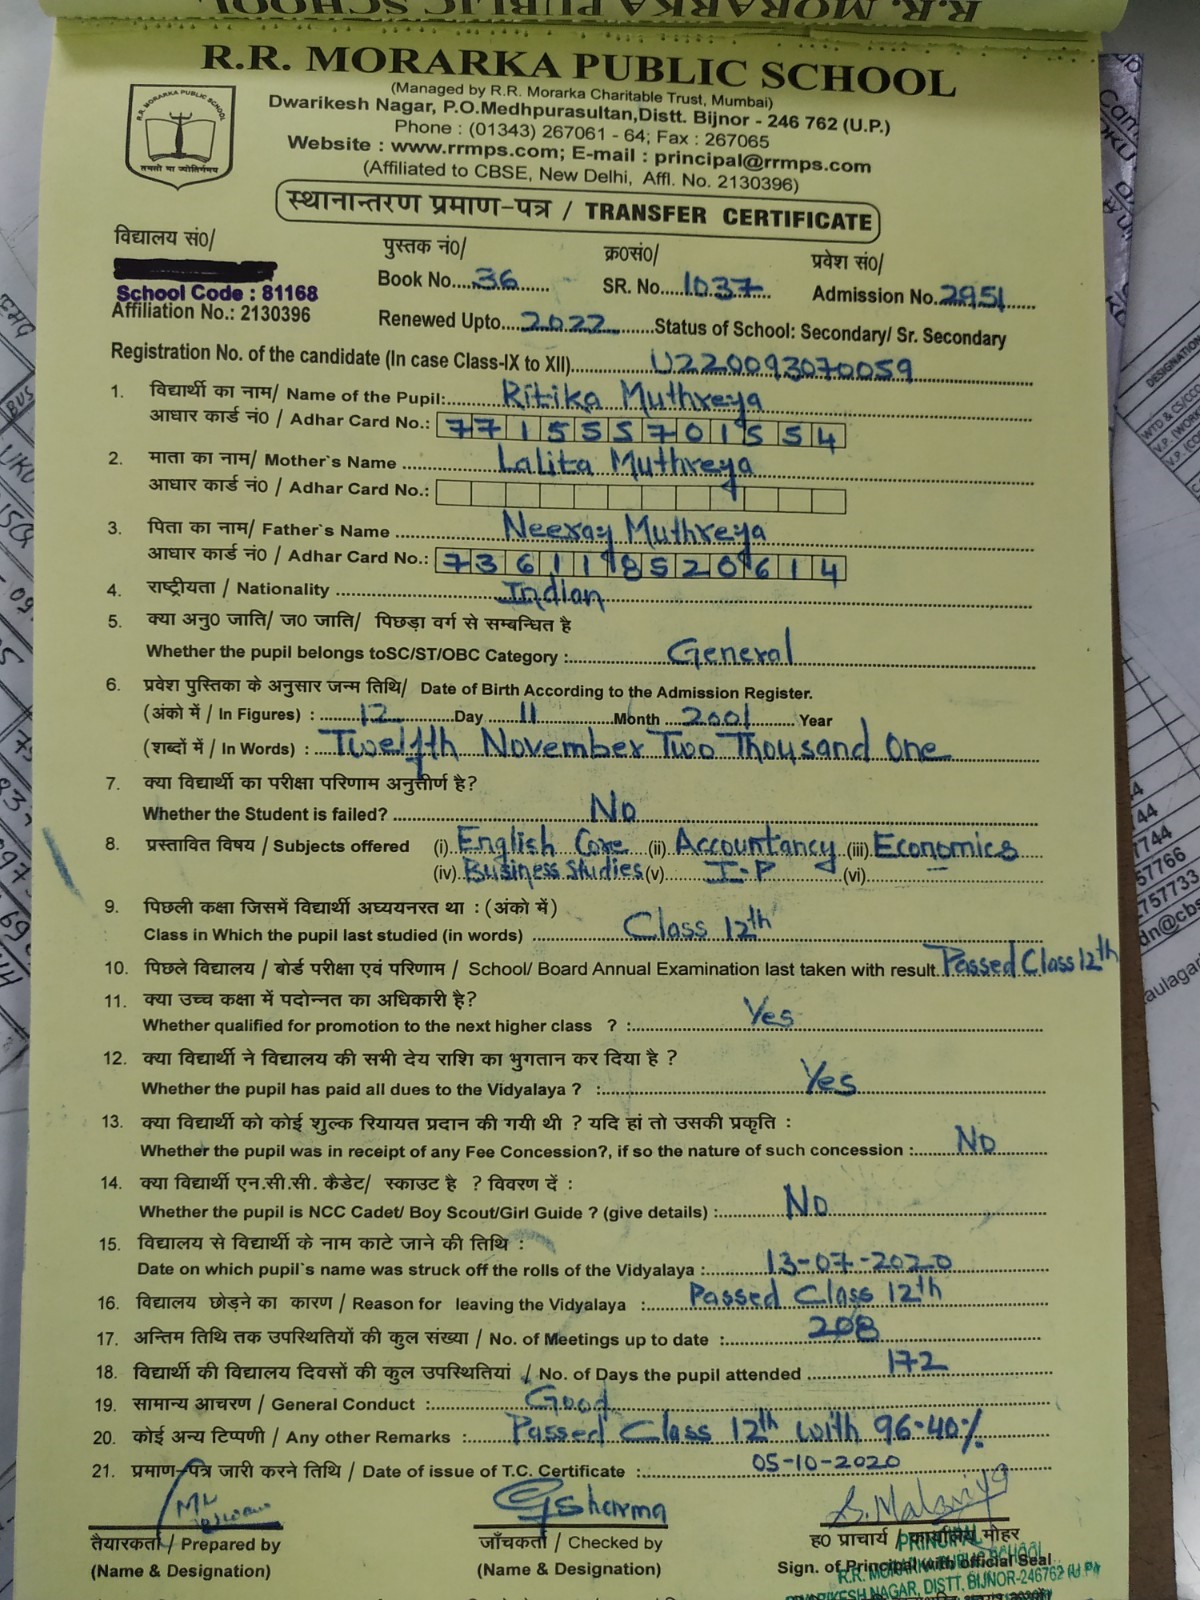 R.R. MORARKA PUBLIC SCHOOL
R.R. MORARKA PUBLIC SCHOOL
(Managed by R.R. Morarka Charitable Trust, Mumbai)
Dwarikesh Nagar, P.O.Medhpurasultan,Distt. Bijnor - 246 762 (U.P.)
Phone : (01343) 267061 - 64; Fax : 267065
Website : www.rrmps.com; E-mail : principal@rrmps.com
(Affiliated to CBSE, New Delhi, Affl. No. 2130396)
R.R. MORARKA PUBLIC SCHOOL
तमसो मा ज्योतिर्गमय
स्थानान्तरण प्रमाण-पत्र / TRANSFER CERTIFICATE
विद्यालय सं0/ पुस्तक नं0/ क्र0सं0/ प्रवेश सं0/
Book No. 36 SR. No. 1037 Admission No. 2951
School Code : 81168
Affiliation No.: 2130396 Renewed Upto 2022 Status of School: Secondary/ Sr. Secondary
Registration No. of the candidate (In case Class-IX to XII) U220093070059
1. विद्यार्थी का नाम/ Name of the Pupil: Ritika Muthreya
आधार कार्ड नं0 / Adhar Card No.: 771555701554
2. माता का नाम/ Mother`s Name Lalita Muthreya
आधार कार्ड नं0 / Adhar Card No.:
3. पिता का नाम/ Father`s Name Neeraj Muthreya
आधार कार्ड नं0 / Adhar Card No.: 736118520614
4. राष्ट्रीयता / Nationality Indian
5. क्या अनु0 जाति/ ज0 जाति/ पिछड़ा वर्ग से सम्बन्धित है
Whether the pupil belongs toSC/ST/OBC Category : General
6. प्रवेश पुस्तिका के अनुसार जन्म तिथि/ Date of Birth According to the Admission Register.
(अंको में / In Figures) : 12 Day 11 Month 2001 Year
(शब्दों में / In Words) : Twelfth November Two Thousand One
7. क्या विद्यार्थी का परीक्षा परिणाम अनुत्तीर्ण है?
Whether the Student is failed? No
8. प्रस्तावित विषय / Subjects offered (i) English Core (ii) Accountancy (iii) Economics
(iv) Business Studies (v) I-P (vi)
9. पिछली कक्षा जिसमें विद्यार्थी अघ्ययनरत था : (अंको में)
Class in Which the pupil last studied (in words) Class 12th
10. पिछले विद्यालय / बोर्ड परीक्षा एवं परिणाम / School/ Board Annual Examination last taken with result Passed Class 12th
11. क्या उच्च कक्षा में पदोन्नत का अधिकारी है?
Whether qualified for promotion to the next higher class ? : Yes
12. क्या विद्यार्थी ने विद्यालय की सभी देय राशि का भुगतान कर दिया है ?
Whether the pupil has paid all dues to the Vidyalaya ? : Yes
13. क्या विद्यार्थी को कोई शुल्क रियायत प्रदान की गयी थी ? यदि हां तो उसकी प्रकृति :
Whether the pupil was in receipt of any Fee Concession?, if so the nature of such concession : No
14. क्या विद्यार्थी एन.सी.सी. कैडेट/ स्काउट है ? विवरण दें :
Whether the pupil is NCC Cadet/ Boy Scout/Girl Guide ? (give details) : No
15. विद्यालय से विद्यार्थी के नाम काटे जाने की तिथि :
Date on which pupil`s name was struck off the rolls of the Vidyalaya : 13-07-2020
16. विद्यालय छोड़ने का कारण / Reason for leaving the Vidyalaya : Passed Class 12th
17. अन्तिम तिथि तक उपस्थितियों की कुल संख्या / No. of Meetings up to date : 208
18. विद्यार्थी की विद्यालय दिवसों की कुल उपस्थितियां / No. of Days the pupil attended 172
19. सामान्य आचरण / General Conduct : Good
20. कोई अन्य टिप्पणी / Any other Remarks : Passed Class 12th with 96.40%
21. प्रमाण-पत्र जारी करने तिथि / Date of issue of T.C. Certificate : 05-10-2020
GSharma
तैयारकर्ता / Prepared by जाँचकर्ता / Checked by ह0 प्राचार्य / कार्यालय मोहर
(Name & Designation) (Name & Designation) Sign. of Principal with official Seal
PRINCIPAL
R.R. MORARKA PUBLIC SCHOOL
DWARIKESH NAGAR, DISTT. BIJNOR-246762 (U.P)
DESIGNATION
7744
57766
757733